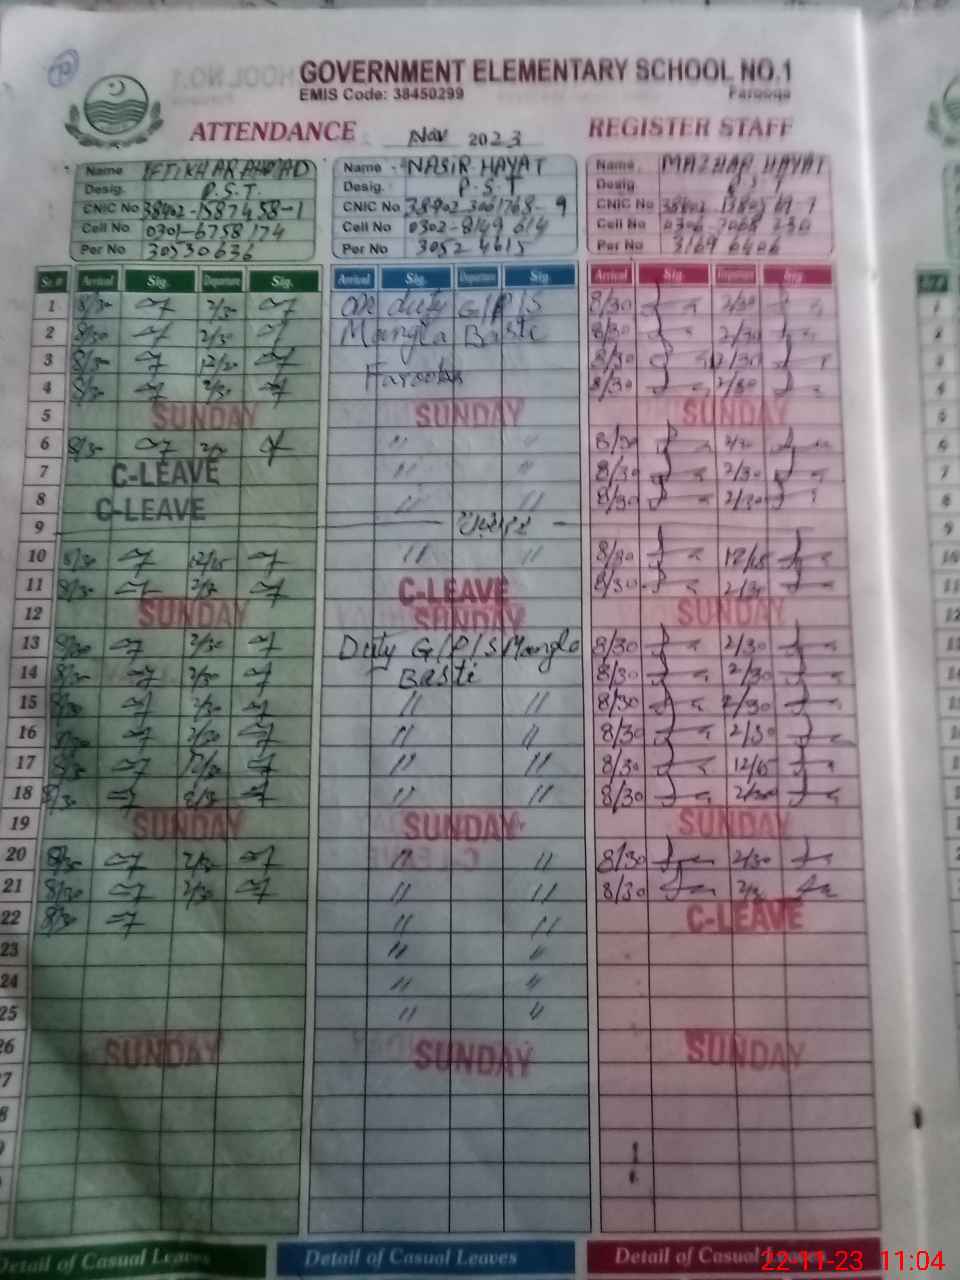 GOVERNMENT ELEMENTARY SCHOOL NO.1
EMIS Code: 38450299 Farooqa
ATTENDANCE Nov 2023 REGISTER STAFF
Name IFTIKHAR AHMAD Name NASIR HAYAT Name MAZHAR HAYAT
Desig. P.S.T. Desig. P.S.T Desig P.S.T
CNIC No 38402-1587458-1 CNIC No CNIC No
Cell No 0301-6758174 Cell No 0302-8149614 Cell No
Per No 30530636 Per No 30524615 Per No 31696406
Sr.# Arrival Sig. Departure Sig. Arrival Sig. Departure Sig. Arrival Sig. Departure Sig.
1 8/30 2/30 on duty G/P/S 8/30 2/30
2 8/30 2/30 Mangla Basti 8/30 2/30
3 8/30 8/30 12/30
4 8/30 2/30 8/30 2/30
5 SUNDAY SUNDAY SUNDAY
6 8/30 2/30 " " 8/30 2/30
7 C-LEAVE " " 8/30 2/30
8 C-LEAVE " " 8/30 2/30
9
10 8/30 12/15 " " 8/30 12/15
11 8/30 2/30 C-LEAVE 8/30 2/30
12 SUNDAY SUNDAY SUNDAY
13 8/30 2/30 Duty G/P/S Mangla 8/30 2/30
14 8/30 2/30 Basti 8/30 2/30
15 8/30 2/30 " " 8/30 2/30
16 8/30 2/30 " " 8/30 2/30
17 8/30 " " 8/30 12/15
18 8/30 2/30 " " 8/30 2/30
19 SUNDAY SUNDAY SUNDAY
20 8/30 2/30 " " 8/30 2/30
21 8/30 2/30 " " 8/30 2/30
22 8/30 " " C-LEAVE
23 " "
24 " "
25 " "
26 SUNDAY SUNDAY SUNDAY
27
8
9
Detail of Casual Leaves Detail of Casual Leaves Detail of Casual Leaves
22-11-23 11:04